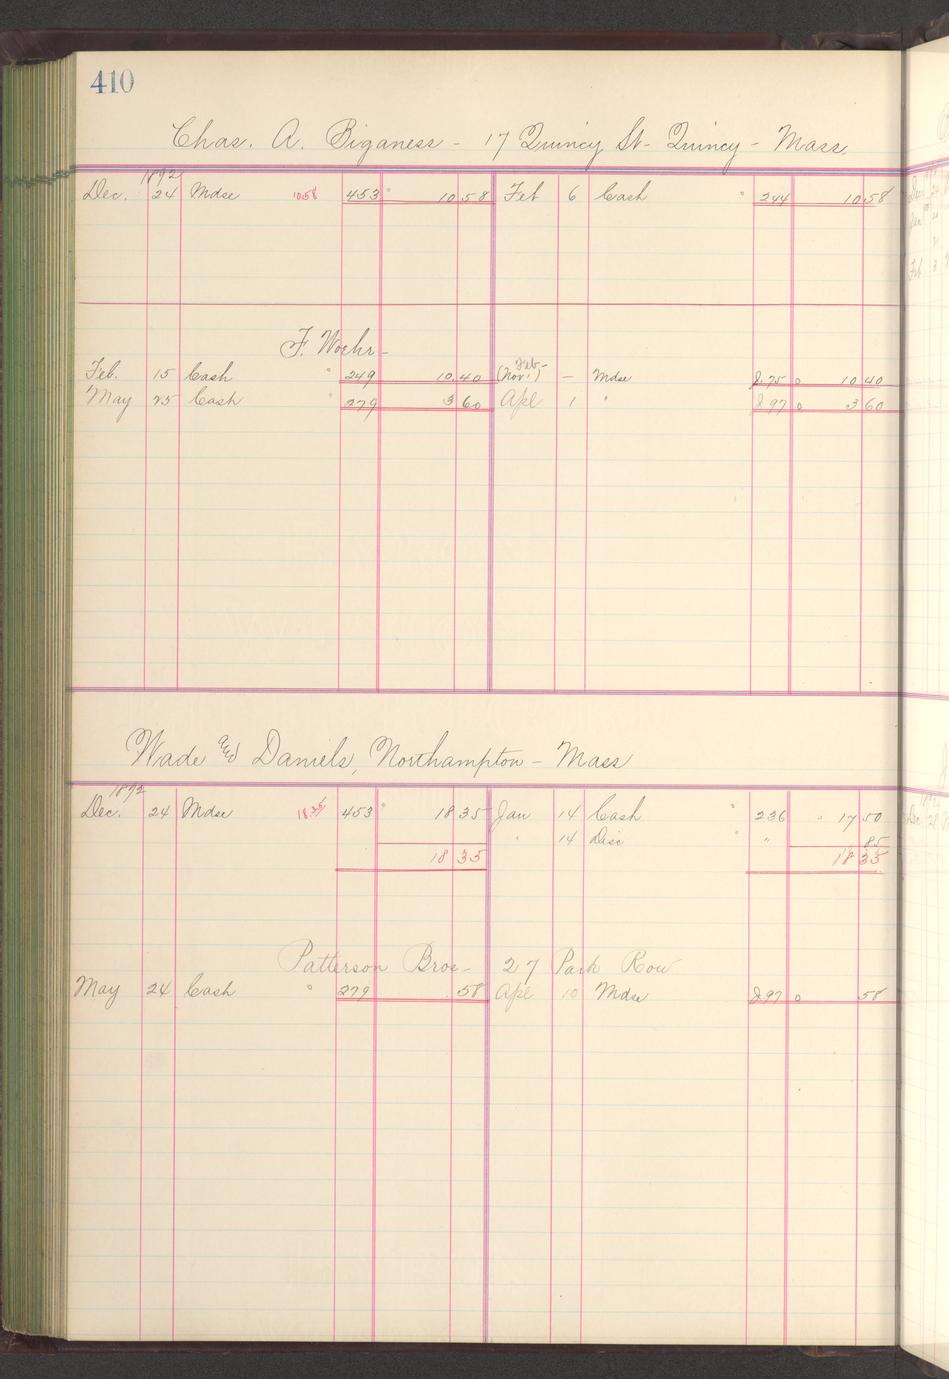 410
Chas. A. Biganess - 17 Quincy St - Quincy - Mass.
1892
Dec. 24 Mdse 10.58 453 " 10 58 Feb 6 Cash " 244 10 58
F. Woehr -
Feb. 15 Cash " 249 10 40 (Nov.) Feb- - Mdse J. 75 o 10 40
May 25 Cash " 279 3 60 Apl 1 " J 97 o 3 60
Wade and Daniels, Northampton - Mass
1892
Dec. 24 Mdse 18.35 453 " 18 35 Jan 14 Cash " 236 " 17 50
" 14 Disc " " 85
18 35 18 35
Patterson Bros - 27 Park Row
May 24 Cash " 279 .58 Apl 10 Mdse J 97 o 58